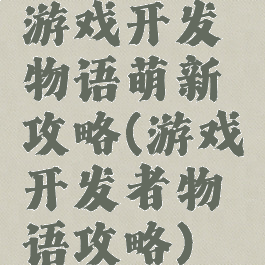 游戏开发
物语萌新
攻略(游戏
开发者物
语攻略)